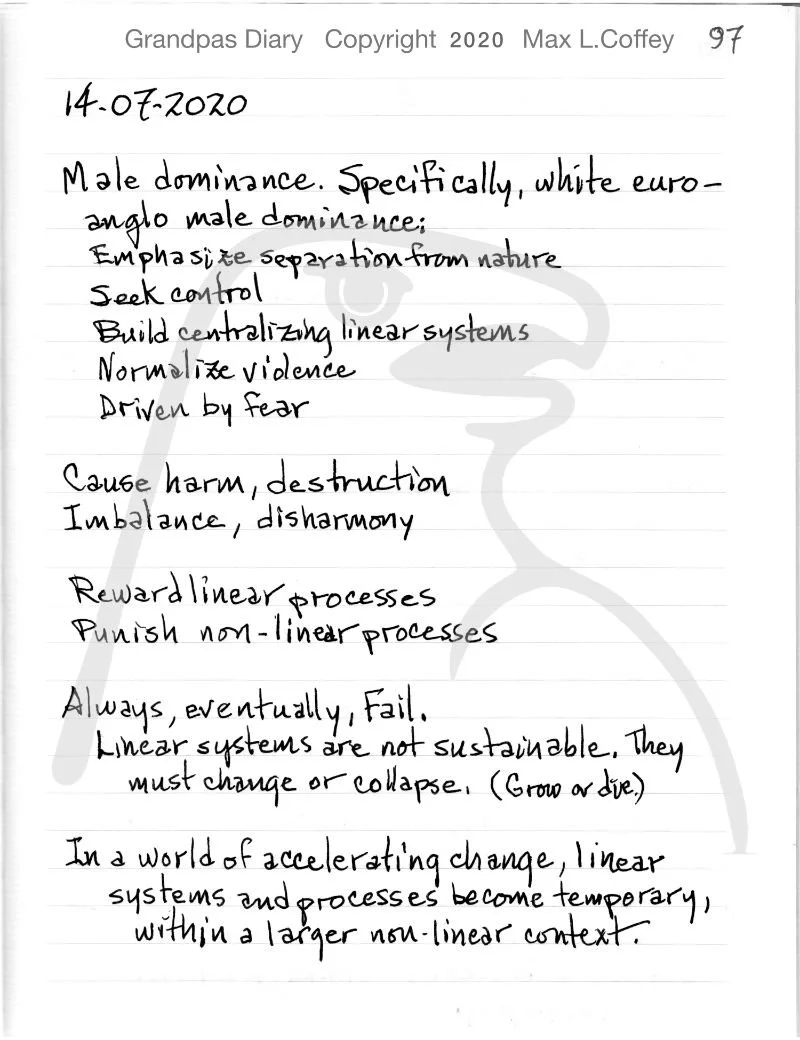 Grandpas Diary Copyright 2020 Max L.Coffey 97
14-07-2020
Male dominance. Specifically, white euro-
anglo male dominance:
Emphasize separation from nature
Seek control
Build centralizing linear systems
Normalize violence
Driven by fear
Cause harm, destruction
Imbalance, disharmony
Reward linear processes
Punish non-linear processes
Always, eventually, Fail.
Linear systems are not sustainable. They
must change or collapse. (Grow or die.)
In a world of accelerating change, linear
systems and processes become temporary,
within a larger non-linear context.